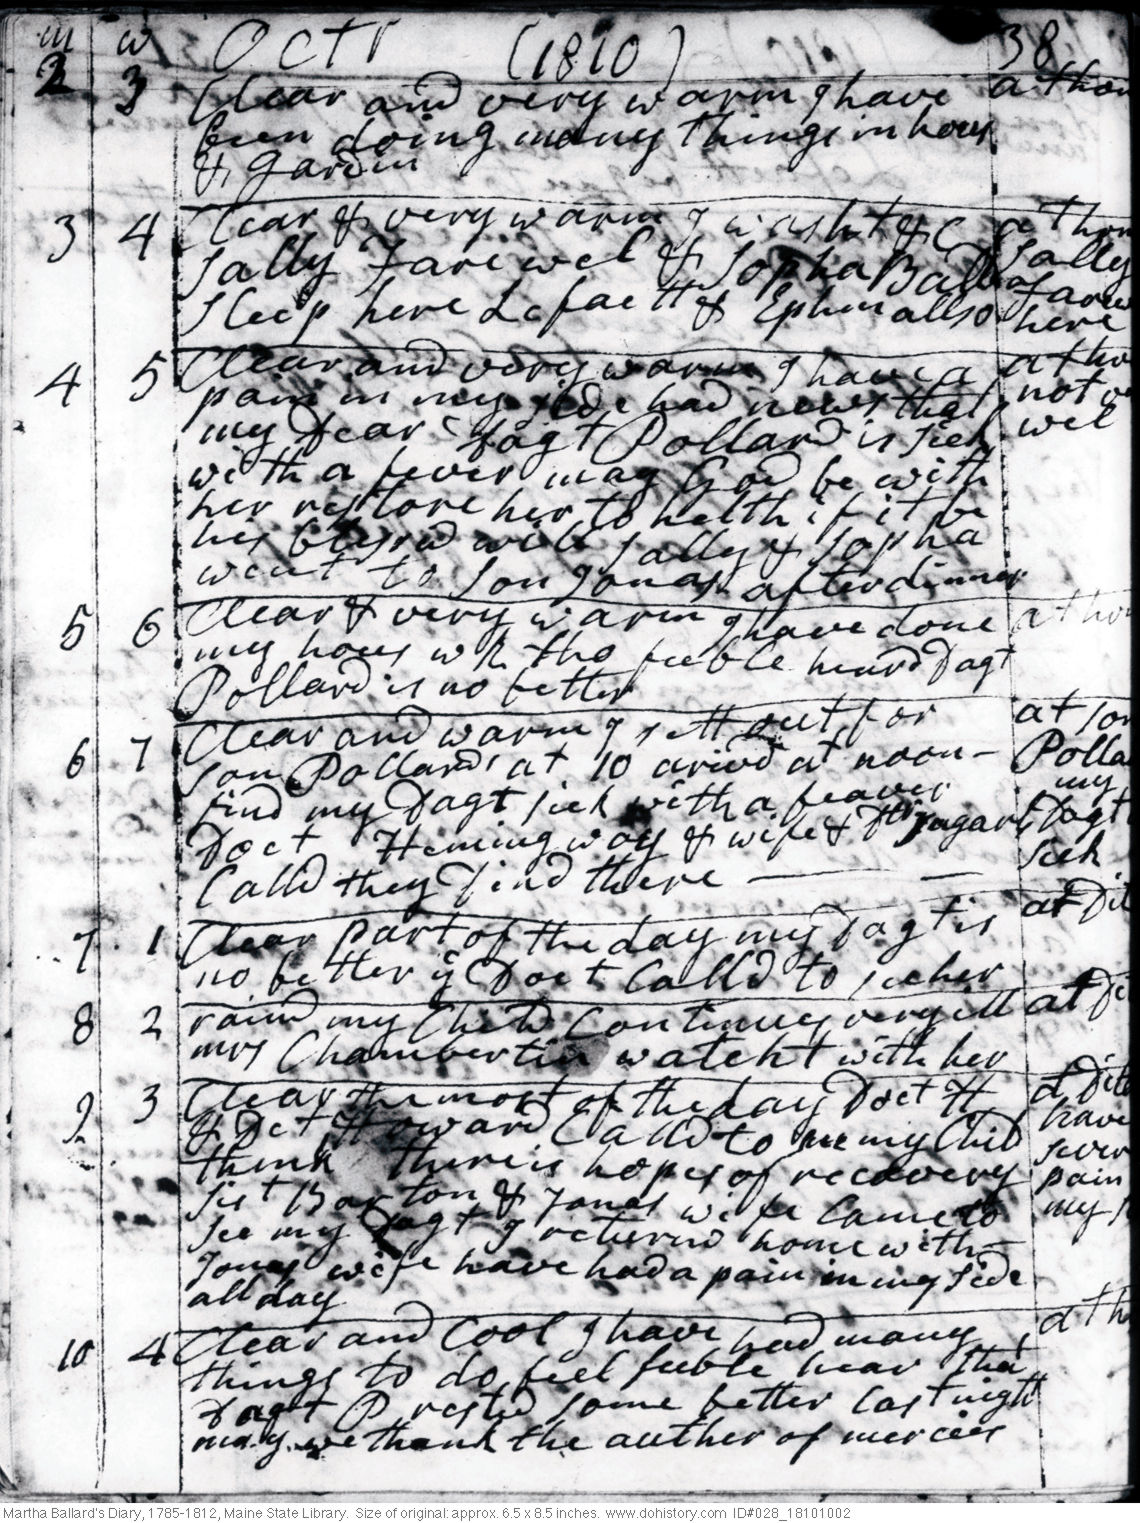 m w Octr (1810) 38
2 3 Clear and very warm I have at hom
been doing many things in hous
& gardin
3 4 Clear & very warm I washt &C at hom
Sally Farewel & Sopha Ball Sally
Sleep here Lafaett & Ephm allso Farew
here
4 5 Clear and very warm I have a at ho
pain in my side had news that not ve
my Dear Dagt Pollard is sick wel
with a fever may God be with
her restore her to helth if it be
his blesed will Sally & Sopha
went to Son Jonas after dinner
5 6 Clear & very warm I have done at hom
my hous wk tho feeble heard Dagt
Pollard is no better
6 7 Clear and warm I sett out for at son
son Pollards at 10 arivd at noon – Polla
find my Dagt sick with a feaver my
Doct Hemingway & wife & Dagt
Calld they find there — — sick
7 1 Clear part of the day my Dagt is at Dit
no better ye Doct Calld to see her
8 2 raind my Child Continues very ill at Dit
mrs Chamberlin watcht with her
9 3 Clear the most of the day Doct H at Dit
& Dct Howard Calld to see my Chil have
think there is hopes of recovery sever
Sist Barton & Jonas wife Came to pain
see my Dagt I returnd home with my s
Jonas wife have had a pain in my side
all day
10 4 Clear and Cool I have had many at ho
things to do feel feeble hear that
Dagt P restd some better last night
may we thank the auther of mercies
Martha Ballard's Diary, 1785-1812, Maine State Library. Size of original: approx. 6.5 x 8.5 inches. www.dohistory.com ID#028_18101002